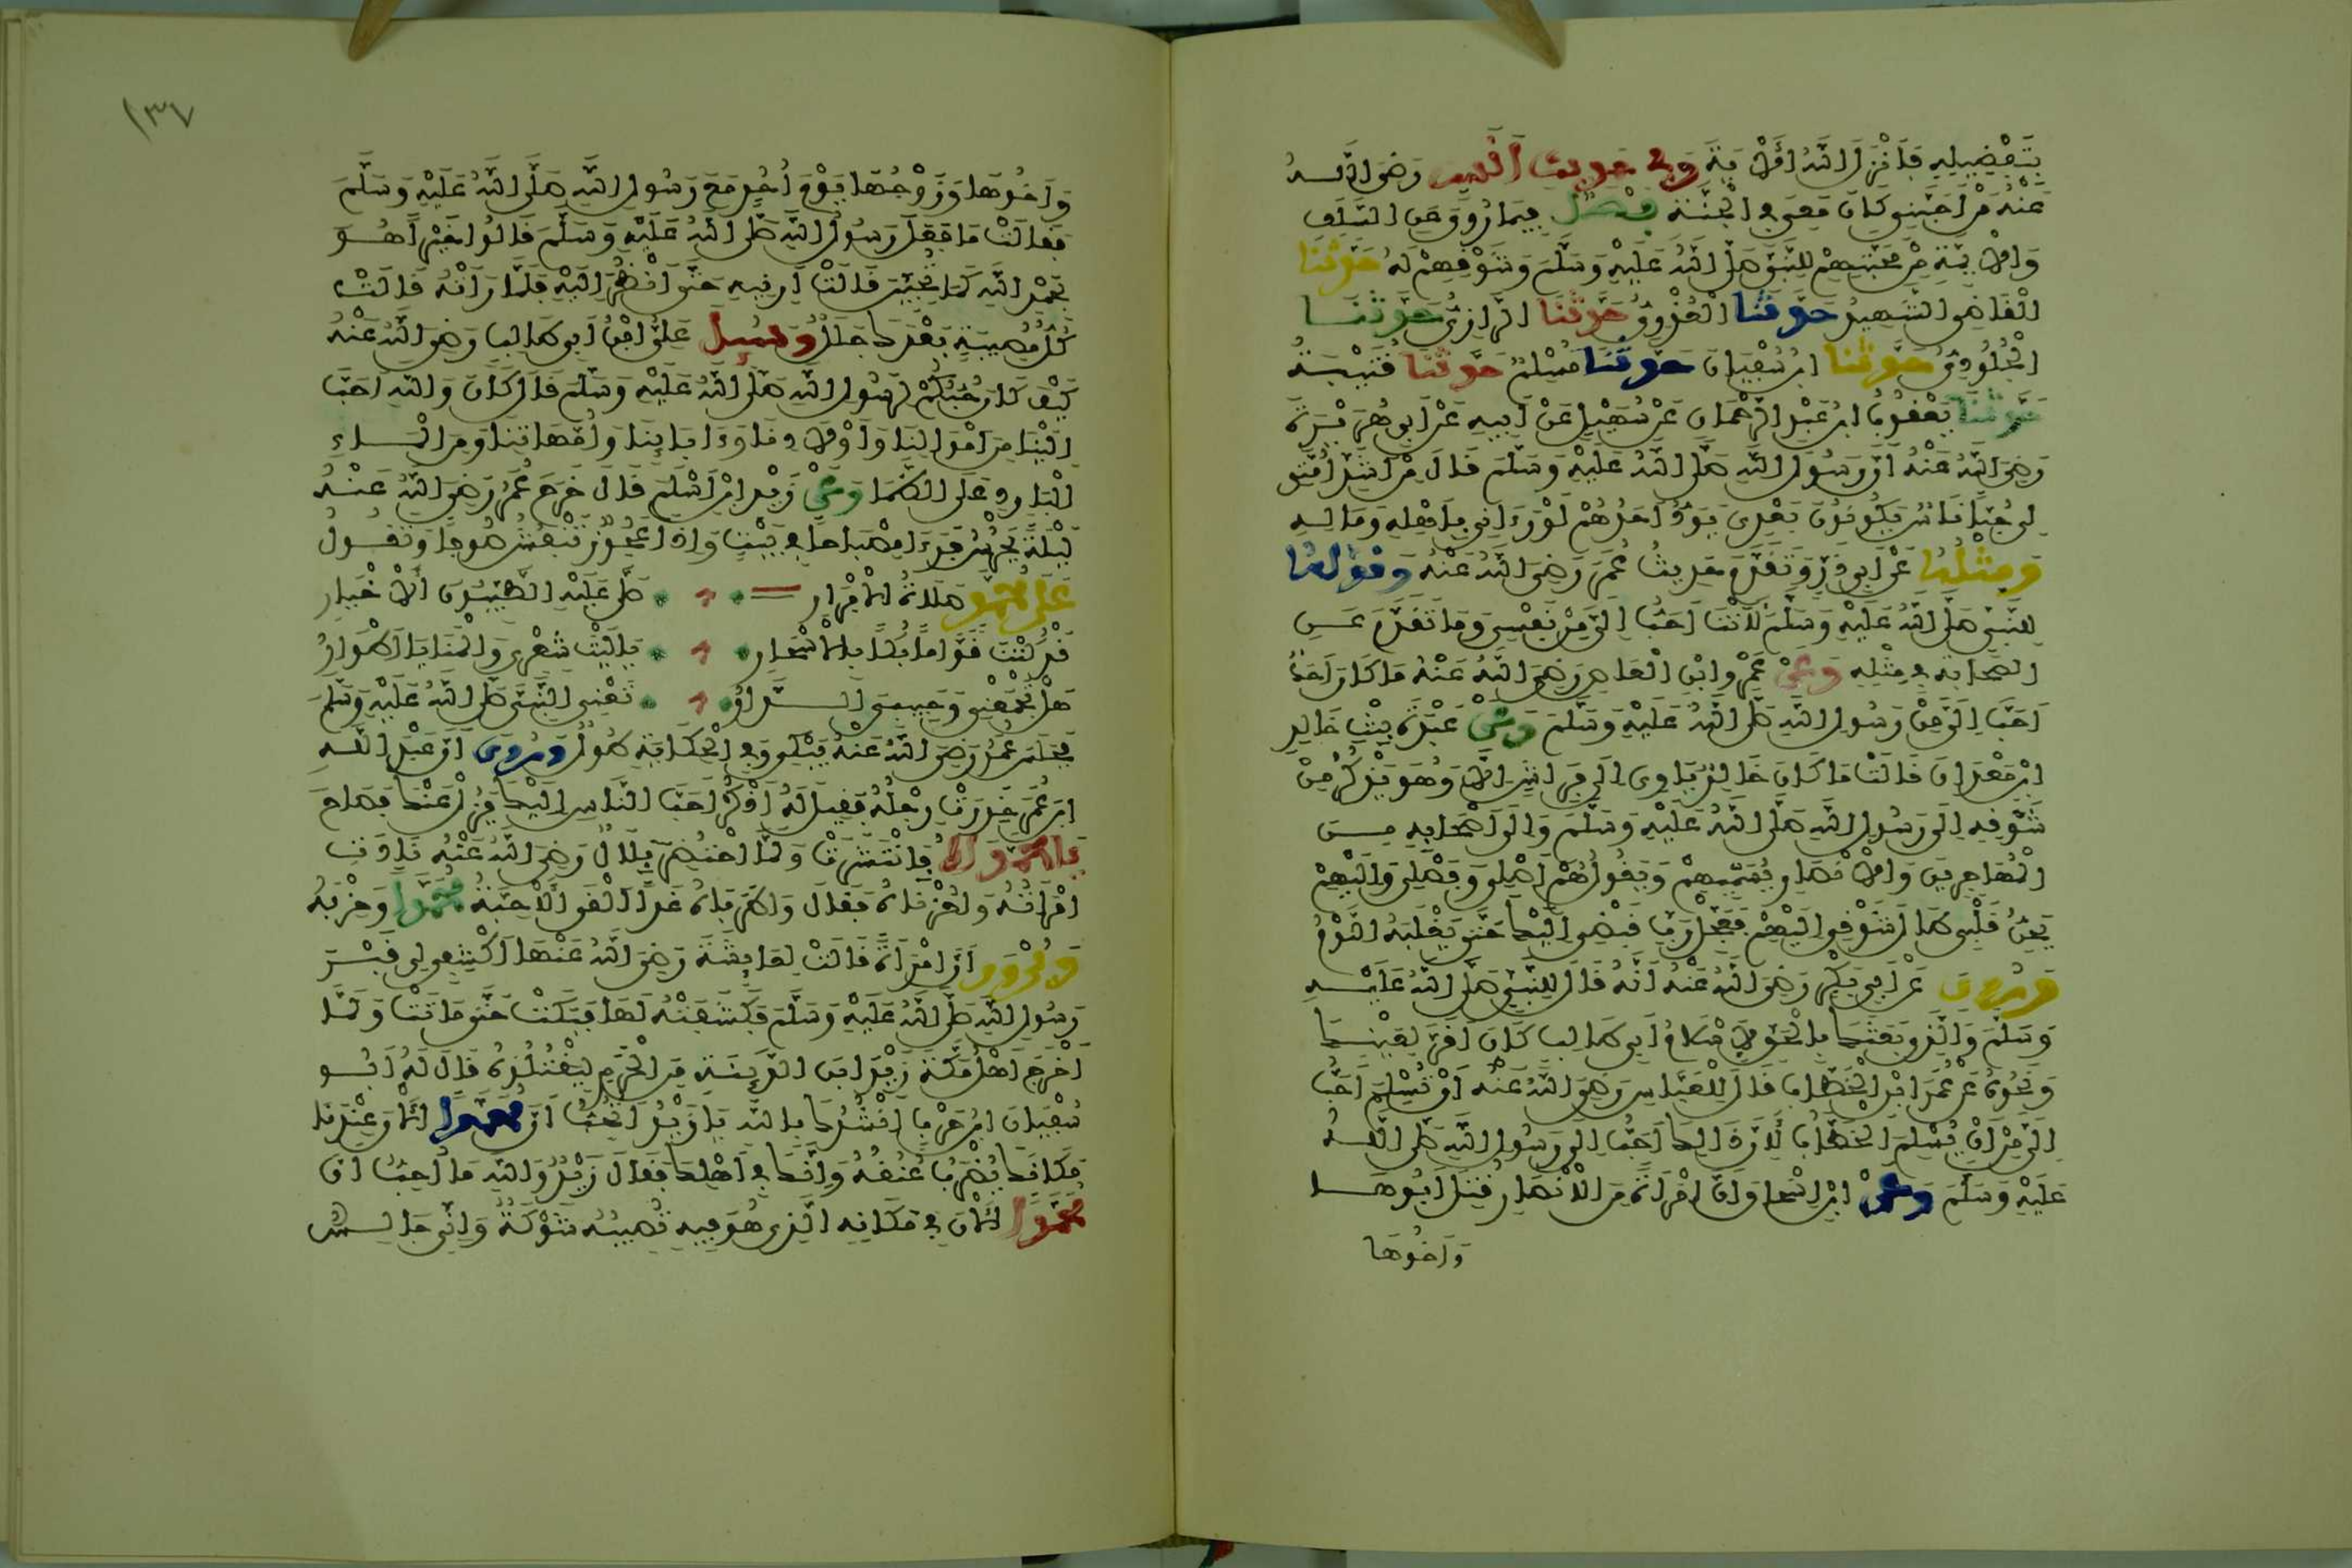 بِتَفْضِيلِهِ فَأَنْزَلَ اللَّهُ الْآيَةَ وفي حديث أنس رَضِيَ اللَّهُ
عَنْهُ مَنْ أَحَبَّنِي كَانَ مَعِي فِي الْجَنَّةِ فصل فِيمَا رُوِيَ عَنِ السَّلَفِ
وَالْأَئِمَّةِ مِنْ مَحَبَّتِهِمْ لِلنَّبِيِّ صَلَّى اللَّهُ عَلَيْهِ وَسَلَّمَ وَشَوْقِهِمْ لَهُ حَدَّثَنَا
الْقَاضِي الشَّهِيدُ حَدَّثَنَا الْعُذْرِيُّ حَدَّثَنَا الرَّازِيُّ حَدَّثَنَا
الْجُلُودِيُّ حَدَّثَنَا ابْنُ سُفْيَانَ حَدَّثَنَا مُسْلِمٌ حَدَّثَنَا قُتَيْبَةُ
حَدَّثَنَا يَعْقُوبُ ابْنُ عَبْدِ الرَّحْمَانِ عَنْ سُهَيْلٍ عَنْ أَبِيهِ عَنْ أَبِي هُرَيْرَةَ
رَضِيَ اللَّهُ عَنْهُ أَنَّ رَسُولَ اللَّهِ صَلَّى اللَّهُ عَلَيْهِ وَسَلَّمَ قَالَ مِنْ أَشَدِّ أُمَّتِي
لِي حُبًّا نَاسٌ يَكُونُونَ بَعْدِي يَوَدُّ أَحَدُهُمْ لَوْ رَءَانِي بِأَهْلِهِ وَمَالِهِ
وَمِثْلُهُ عَنْ أَبِي ذَرٍّ وَتَقَدَّمَ حَدِيثُ عُمَرَ رَضِيَ اللَّهُ عَنْهُ وقوله
لِلنَّبِيِّ صَلَّى اللَّهُ عَلَيْهِ وَسَلَّمَ لَأَنْتَ أَحَبُّ إِلَيَّ مِنْ نَفْسِي وَمَا تَقَدَّمَ عَنِ
الصَّحَابَةِ فِي مِثْلِهِ وَعَنْ عَمْرِو ابْنِ الْعَاصِ رَضِيَ اللَّهُ عَنْهُ مَا كَانَ أَحَدٌ
أَحَبَّ إِلَيَّ مِنْ رَسُولِ اللَّهِ صَلَّى اللَّهُ عَلَيْهِ وَسَلَّمَ وَعَنْ عَبْدَةَ بِنْتِ خَالِدِ
ابْنِ مَعْدَانَ قَالَتْ مَا كَانَ خَالِدٌ يَاوِي إِلَى فِرَاشٍ إِلَّا وَهُوَ يَذْكُرُ مِنْ
شَوْقِهِ إِلَى رَسُولِ اللَّهِ صَلَّى اللَّهُ عَلَيْهِ وَسَلَّمَ وَإِلَى أَصْحَابِهِ مِنَ
الْمُهَاجِرِينَ وَالْأَنْصَارِ يُسَمِّيهِمْ وَيَقُولُ هُمْ أَصْلِي وَفَصْلِي وَإِلَيْهِمْ
يَحِنُّ قَلْبِي طَالَ شَوْقِي إِلَيْهِمْ فَعَجِّلْ رَبِّ قَبْضِي إِلَيْكَ حَتَّى يَغْلِبَهُ النَّوْمُ
وَرُوِيَ عَنْ أَبِي بَكْرٍ رَضِيَ اللَّهُ عَنْهُ أَنَّهُ قَالَ لِلنَّبِيِّ صَلَّى اللَّهُ عَلَيْهِ
وَسَلَّمَ وَالَّذِي بَعَثَكَ بِالْحَقِّ لَإِسْلَامُ أَبِي طَالِبٍ كَانَ أَقَرَّ لِعَيْنِي
وَنَحْوُهُ عَنْ عُمَرَ ابْنِ الْخَطَّابِ قَالَ لِلْعَبَّاسِ رَضِيَ اللَّهُ عَنْهُ أَنْ تُسْلِمَ أَحَبُّ
إِلَيَّ مِنْ أَنْ يُسْلِمَ الْخَطَّابُ لِأَنَّ ذَالِكَ أَحَبُّ إِلَى رَسُولِ اللَّهِ صَلَّى اللَّهُ
عَلَيْهِ وَسَلَّمَ وَعَنْ ابْنِ إِسْحَاقَ أَنَّ امْرَأَةً مِنَ الْأَنْصَارِ قُتِلَ أَبُوهَا
وَأَخُوهَا
١٣٧
وَأَخُوهَا وَزَوْجُهَا يَوْمَ أُحُدٍ مَعَ رَسُولِ اللَّهِ صَلَّى اللَّهُ عَلَيْهِ وَسَلَّمَ
فَقَالَتْ مَا فَعَلَ رَسُولُ اللَّهِ صَلَّى اللَّهُ عَلَيْهِ وَسَلَّمَ قَالُوا خَيْرًا هُوَ
بِحَمْدِ اللَّهِ كَمَا تُحِبِّينَ قَالَتْ أَرِنِيهِ حَتَّى أَنْظُرَ إِلَيْهِ فَلَمَّا رَأَتْهُ قَالَتْ
كُلُّ مُصِيبَةٍ بَعْدَكَ جَلَلٌ وسُئِلَ عَلِيُّ ابْنُ أَبِي طَالِبٍ رَضِيَ اللَّهُ عَنْهُ
كَيْفَ كَانَ حُبُّكُمْ لِرَسُولِ اللَّهِ صَلَّى اللَّهُ عَلَيْهِ وَسَلَّمَ قَالَ كَانَ وَاللَّهِ أَحَبَّ
إِلَيْنَا مِنْ أَمْوَالِنَا وَأَوْلَادِنَا وَءَابَائِنَا وَأُمَّهَاتِنَا وَمِنَ الْمَاءِ
الْبَارِدِ عَلَى الظَّمَا وَعَنْ زَيْدِ ابْنِ أَسْلَمَ قَالَ خَرَجَ عُمَرُ رَضِيَ اللَّهُ عَنْهُ
لَيْلَةً يَحْرُسُ فَرَءَا مِصْبَاحًا فِي بَيْتٍ وَإِذَا عَجُوزٌ تَنْفُشُ صُوفًا وَتَقُولُ
عَلَى مُحَمَّدٍ صَلَاةُ الْأَبْرَارِ صَلَّى عَلَيْهِ الطَّيِّبُونَ الْأَخْيَارِ
قَدْ كُنْتَ قَوَّامًا بُكًا بِالْأَسْحَارِ يَا لَيْتَ شِعْرِي وَالْمَنَايَا أَطْوَارُ
هَلْ تَجْمَعُنِي وَحَبِيبِي الدَّارُ تَعْنِي النَّبِيَّ صَلَّى اللَّهُ عَلَيْهِ وَسَلَّمَ
فَجَلَسَ عُمَرُ رَضِيَ اللَّهُ عَنْهُ يَبْكِي وَفِي الْحِكَايَةِ طُولٌ وَرُوِيَ أَنَّ عَبْدَ اللَّهِ
ابْنَ عُمَرَ خَدِرَتْ رِجْلُهُ فَقِيلَ لَهُ اذْكُرْ أَحَبَّ النَّاسِ إِلَيْكَ يَزُلْ عَنْكَ فَصَاحَ
يَا مُحَمَّدَاهْ فَانْتَشَرَتْ وَلَمَّا احْتُضِرَ بِلَالٌ رَضِيَ اللَّهُ عَنْهُ نَادَتِ
امْرَأَتُهُ وَاحُزْنَاهُ فَقَالَ وَاطَرَبَاهُ غَدًا أَلْقَى الْأَحِبَّةَ مُحَمَّدًا وَحِزْبَهُ
وَيُرْوَى أَنَّ امْرَأَةً قَالَتْ لِعَائِشَةَ رَضِيَ اللَّهُ عَنْهَا اكْشِفِي لِي قَبْرَ
رَسُولِ اللَّهِ صَلَّى اللَّهُ عَلَيْهِ وَسَلَّمَ فَكَشَفَتْهُ لَهَا فَبَكَتْ حَتَّى مَاتَتْ وَلَمَّا
أَخْرَجَ أَهْلُ مَكَّةَ زَيْدَ ابْنَ الدَّثِنَةِ مِنَ الْحَرَمِ لِيَقْتُلُوهُ قَالَ لَهُ أَبُو
سُفْيَانَ ابْنُ حَرْبٍ أَنْشُدُكَ بِاللَّهِ يَا زَيْدُ أَتُحِبُّ أَنَّ مُحَمَّدًا الْآنَ عِنْدَنَا
مَكَانَكَ يُضْرَبُ عُنُقُهُ وَإِنَّكَ فِي أَهْلِكَ فَقَالَ زَيْدٌ وَاللَّهِ مَا أُحِبُّ أَنَّ
مُحَمَّدًا الْآنَ فِي مَكَانِهِ الَّذِي هُوَ فِيهِ تُصِيبُهُ شَوْكَةٌ وَإِنِّي جَالِسٌ